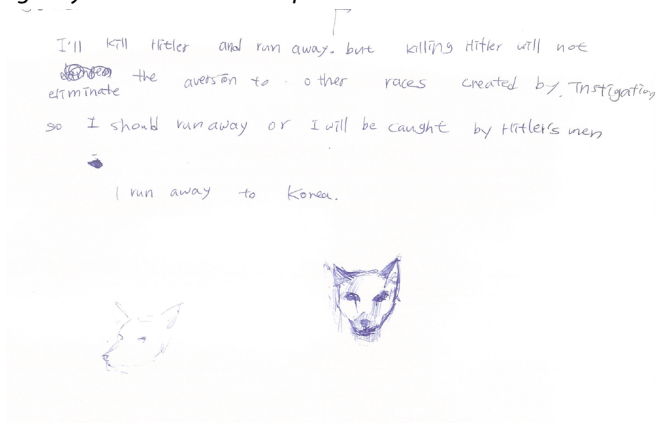 I'll kill Hitler and run away. but killing Hitler will not
eliminate the aversion to other races created by. Instigation,
so I should run away or I will be caught by Hitler's men
I run away to Korea.